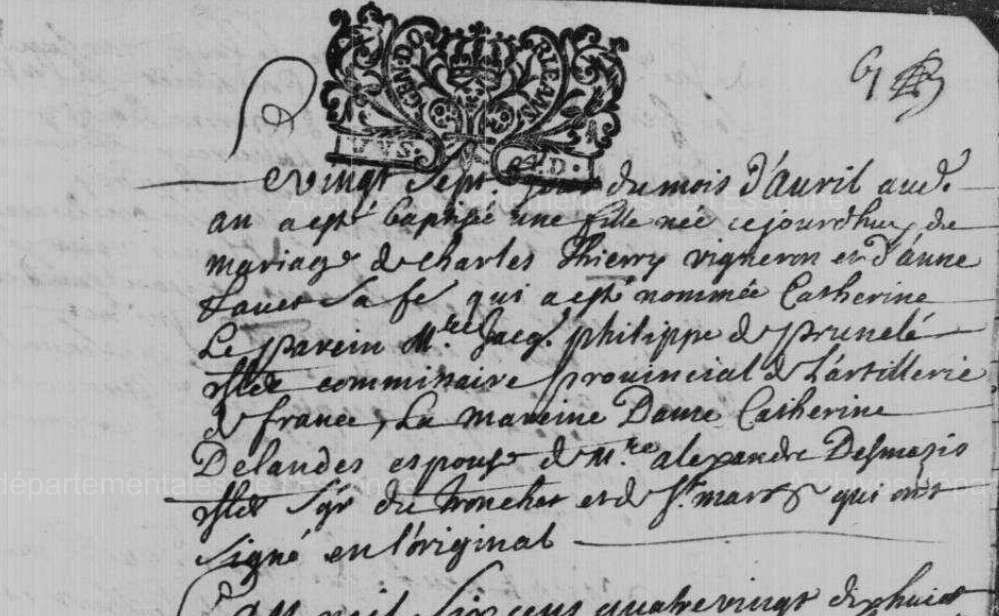 GEN. DORLEANS
61
Le vingt sept. jour du mois d'auril aud.
an a esté baptisée une fille née cejourdhuy de
mariage de charles Thierry vigneron et d'anne
sa fe qui a esté nommée Catherine
Le parein Mre Jacq. philippe de prunelé
commissaire prouincial de l'artillerie
de france, La mareine Dame Catherine
Delandes espouse de Mre alexandre Desmazis
sgr du tronchet et de St. mars qui ont
signé en l'original
L'an mil six cens quatre vingt dixhuict